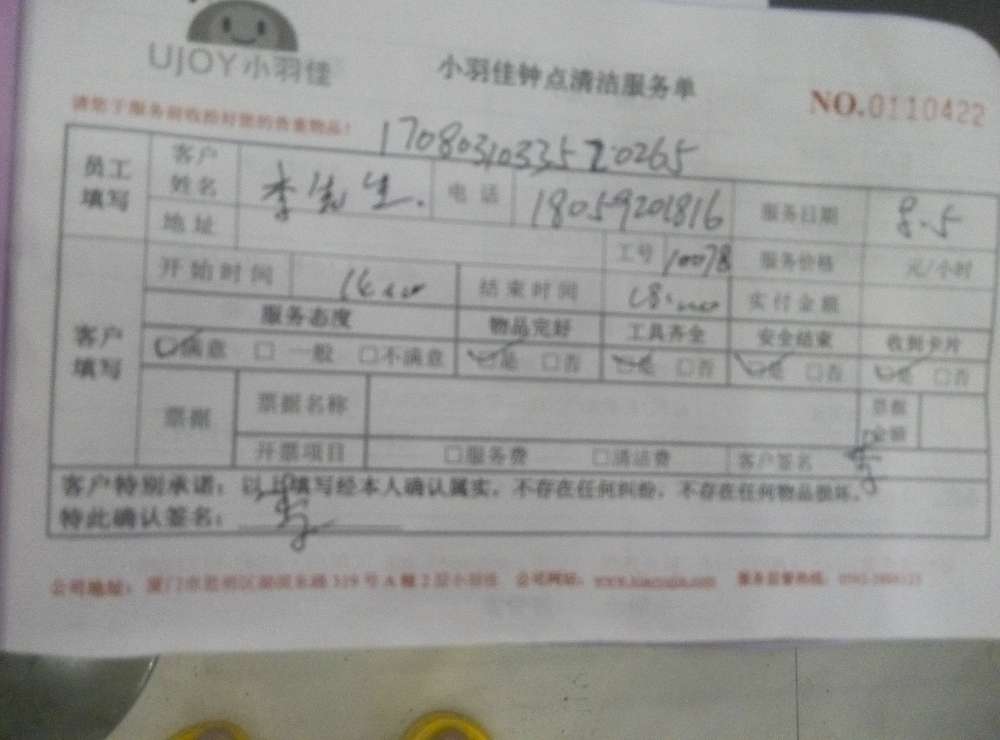 UJOY小羽佳
小羽佳钟点清洁服务单
NO.0110422
请您于服务前收拾好您的贵重物品！
1708031033520265
员工填写 客户姓名 李先生. 电话 18059201816 服务日期 8.5
地址 工号 10078 服务价格 元/小时
客户填写 开始时间 14:00 结束时间 18:00 实付金额
服务态度 物品完好 工具齐全 安全结束 收到卡片
满意 □一般 □不满意 是 □否 是 □否 是 □否 是 □否
票据 票据名称 票据金额
开票项目 □服务费 □清洁费 客户签名 李
客户特别承诺：以上填写经本人确认属实，不存在任何纠纷，不存在任何物品损坏。
特此确认签名：李
公司地址：厦门市思明区湖滨东路319号A幢2层小羽佳 公司网站： 服务监督热线：